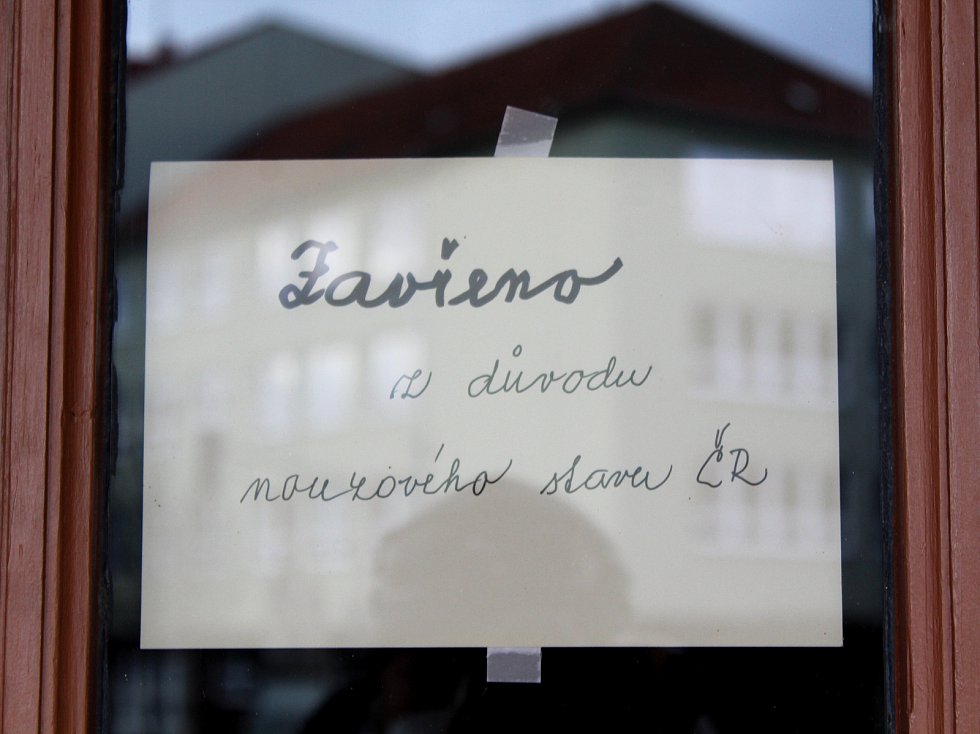 Zavřeno
z důvodu
nouzového stavu ČR